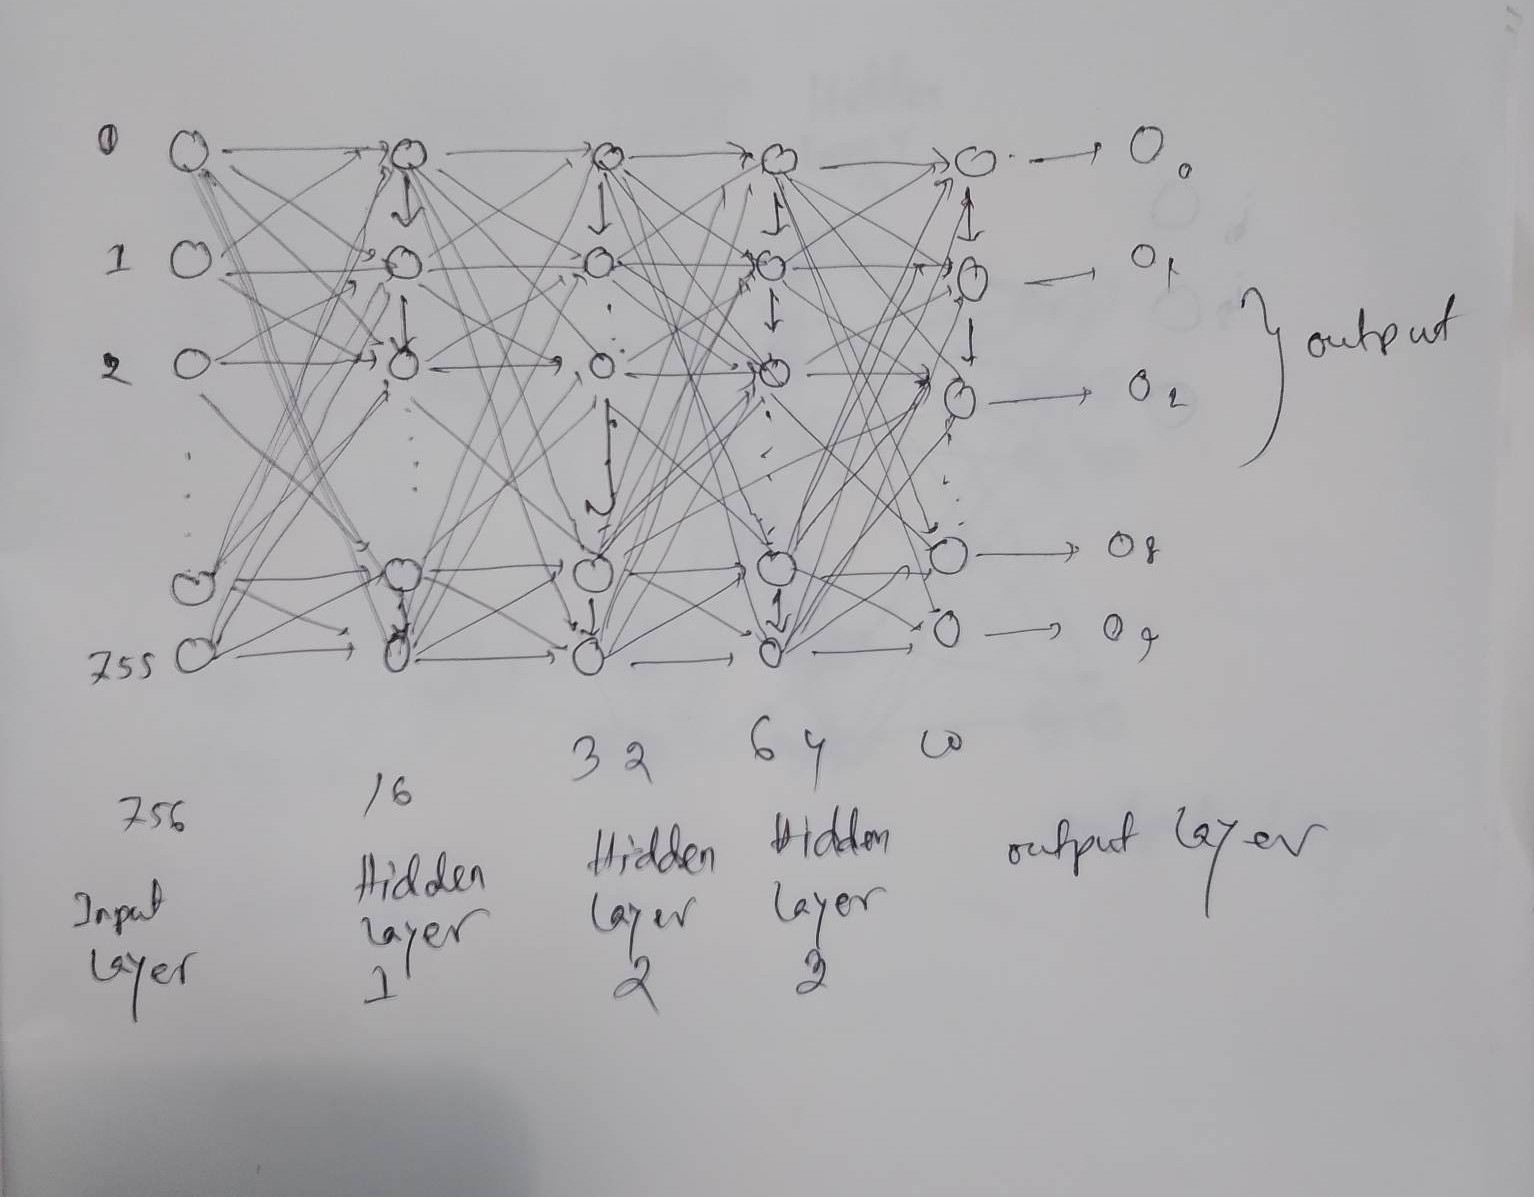 0
1
2
755
O0
O1
O2
O8
O9
output
756
16
32
64
10
Input
Layer
Hidden
Layer
1
Hidden
Layer
2
Hidden
Layer
3
output Layer